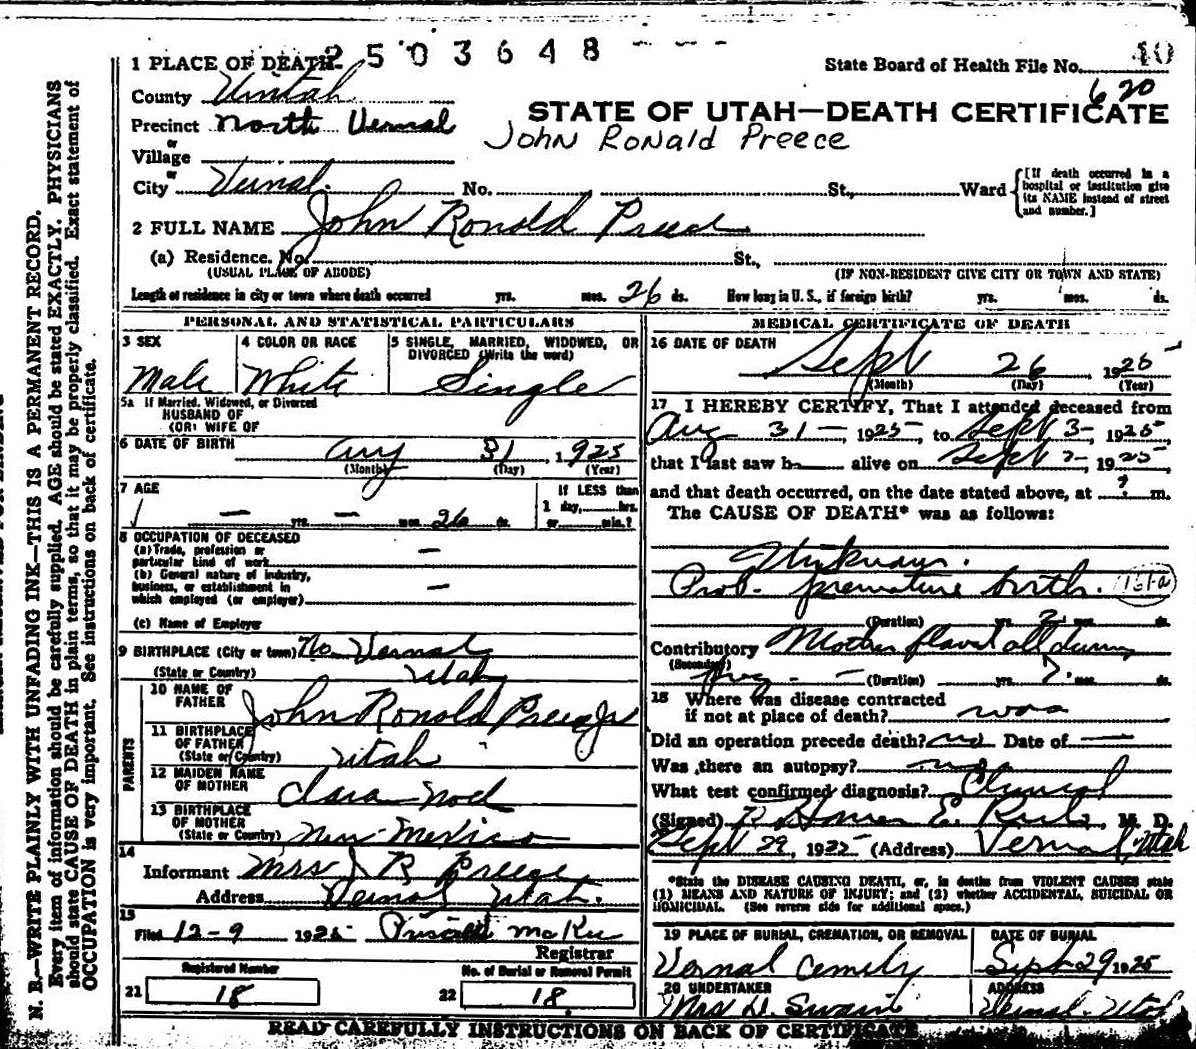 2503648
1 PLACE OF DEATH
State Board of Health File No. 40
620
County Uintah
STATE OF UTAH—DEATH CERTIFICATE
Precinct North Vernal
John Ronald Preece
or
Village
or
City Vernal. No. St., Ward
[If death occurred in a hospital or institution give its NAME instead of street and number.]
2 FULL NAME John Ronald Preece
(a) Residence. No. St.,
(USUAL PLACE OF ABODE) (IF NON-RESIDENT GIVE CITY OR TOWN AND STATE)
Length of residence in city or town where death occurred yrs. mos. 26 ds. How long in U. S., if foreign birth? yrs. mos. ds.
PERSONAL AND STATISTICAL PARTICULARS
3 SEX 4 COLOR OR RACE 5 SINGLE, MARRIED, WIDOWED, OR
DIVORCED (Write the word)
Male White Single
5a If Married, Widowed, or Divorced
HUSBAND OF
(OR) WIFE OF
6 DATE OF BIRTH Aug 31, 1925
(Month) (Day) (Year)
7 AGE If LESS than
1 day, hrs.
— yrs. — mos. 26 ds. or min.?
8 OCCUPATION OF DECEASED
(a) Trade, profession or
particular kind of work —
(b) General nature of industry,
business, or establishment in
which employed (or employer) —
(c) Name of Employer
9 BIRTHPLACE (City or town) No. Vernal
(State or Country) Utah
PARENTS
10 NAME OF
FATHER John Ronald Preece Jr
11 BIRTHPLACE
OF FATHER
(State or Country) Utah
12 MAIDEN NAME
OF MOTHER Clara Noel
13 BIRTHPLACE
OF MOTHER
(State or Country) New Mexico
14
Informant Mrs J R Preece
Address Vernal Utah.
15
Filed 12-9 1925 Priscilla McKee
Registrar
Registered Number No. of Burial or Removal Permit
21 18 22 18
MEDICAL CERTIFICATE OF DEATH
16 DATE OF DEATH
Sept 26, 1925
(Month) (Day) (Year)
17 I HEREBY CERTIFY, That I attended deceased from
Aug 31 —, 1925, to Sept 3 -, 1925,
that I last saw h alive on Sept 2 -, 1925,
and that death occurred, on the date stated above, at ? m.
The CAUSE OF DEATH* was as follows:
Unknown.
Prob. premature birth.
(Duration) yrs. ds.
Contributory Mother
(Secondary) (Duration) yrs. mos. ds.
18 Where was disease contracted
if not at place of death?
Did an operation precede death? no Date of —
Was there an autopsy? no
What test confirmed diagnosis? Clinical
(Signed) Homer E. , M. D.
Sept 29, 1925 (Address) Vernal, Utah
*State the DISEASE CAUSING DEATH, or, in deaths from VIOLENT CAUSES state
(1) MEANS AND NATURE OF INJURY; and (2) whether ACCIDENTAL, SUICIDAL OR
HOMICIDAL. (See reverse side for additional space.)
19 PLACE OF BURIAL, CREMATION, OR REMOVAL DATE OF BURIAL
Vernal Sept 29 1925
20 UNDERTAKER ADDRESS
Mrs D. Swain Vernal. Utah
READ CAREFULLY INSTRUCTIONS ON BACK OF CERTIFICATE
N. B.—WRITE PLAINLY WITH UNFADING INK—THIS IS A PERMANENT RECORD.
Every item of information should be carefully supplied. AGE should be stated EXACTLY. PHYSICIANS
should state CAUSE OF DEATH in plain terms, so that it may be properly classified. Exact statement of
OCCUPATION is very important. See instructions on back of certificate.